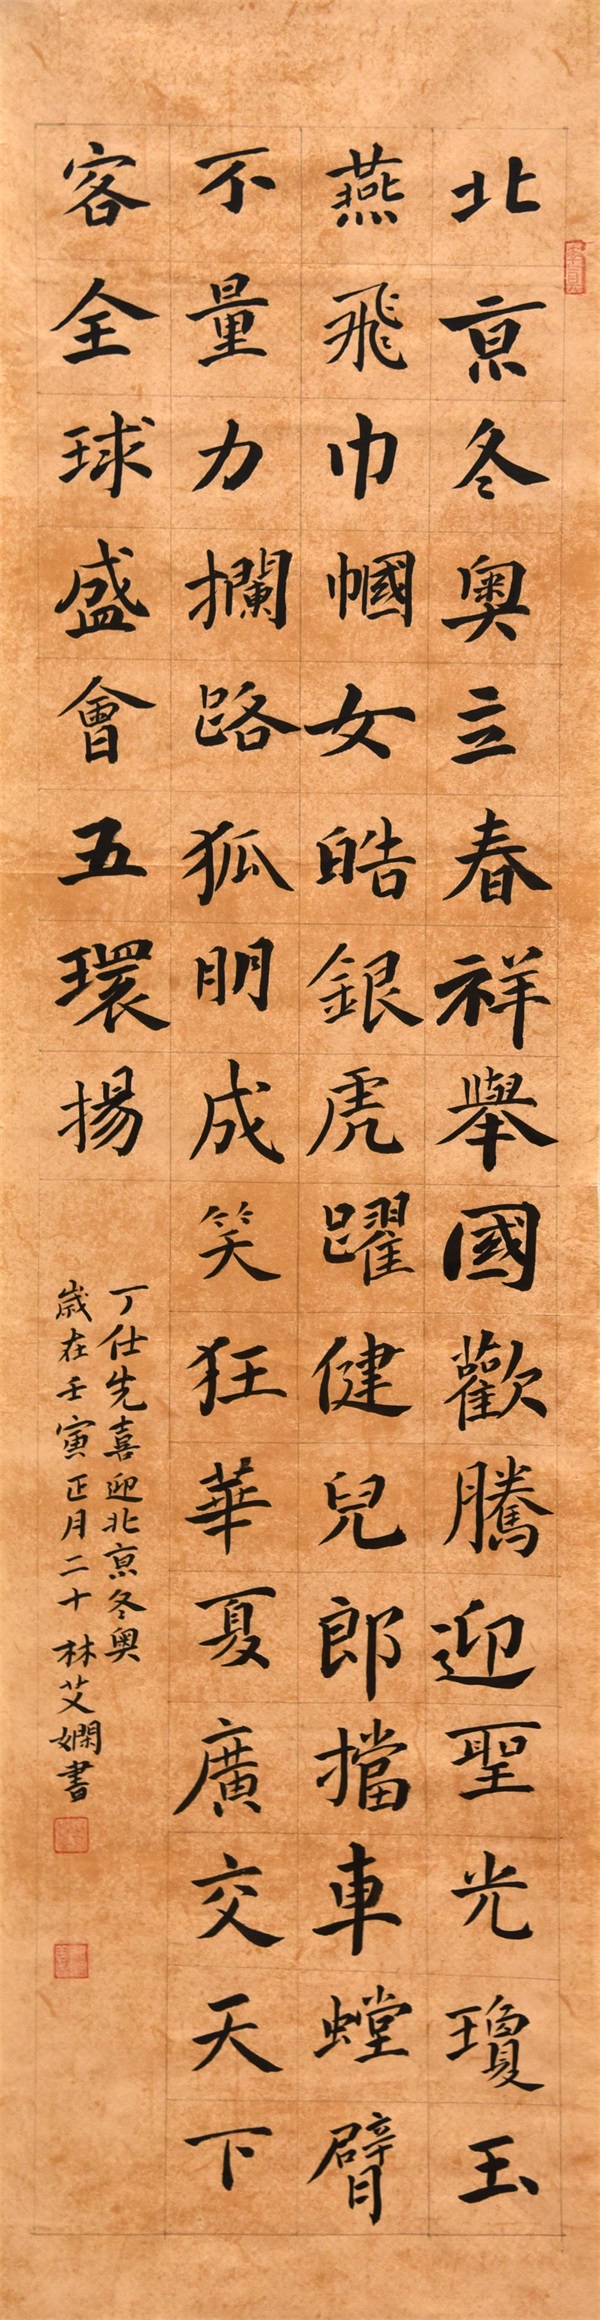 北京冬奧立春祥舉國歡騰迎聖光瓊玉
燕飛巾幗女皓銀虎躍健兒郎擋車螳臂
不量力攔路狐朋成笑狂華夏廣交天下
客全球盛會五環揚
丁仕先喜迎北京冬奧
歲在壬寅正月二十林艾嫻書